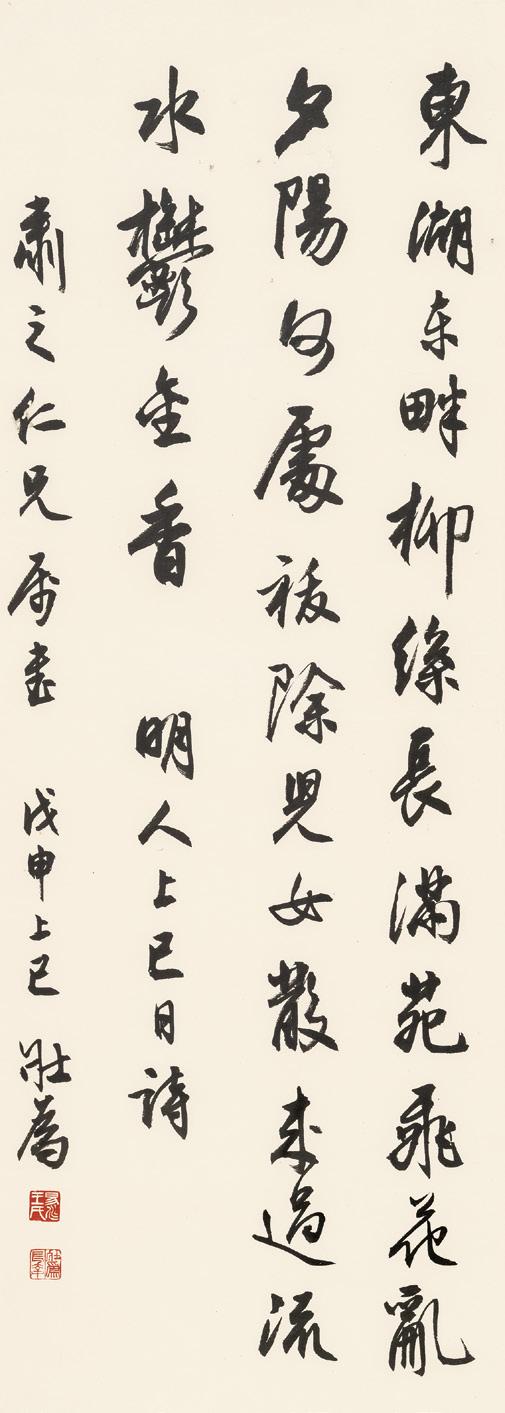 東湖東畔柳絲長滿苑飛花亂
夕陽何處祓除兒女散來過流
水鬱金香 明人上巳日詩
肅之仁兄属書 戊申上巳 莊為